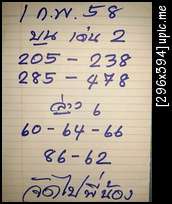 1 ก.พ. 58
บน เด่น 2
205 - 238
285 - 478
ล่าง 6
60 - 64 - 66
86 - 62
จัดไปพี่น้อง
[296x394] upic.me